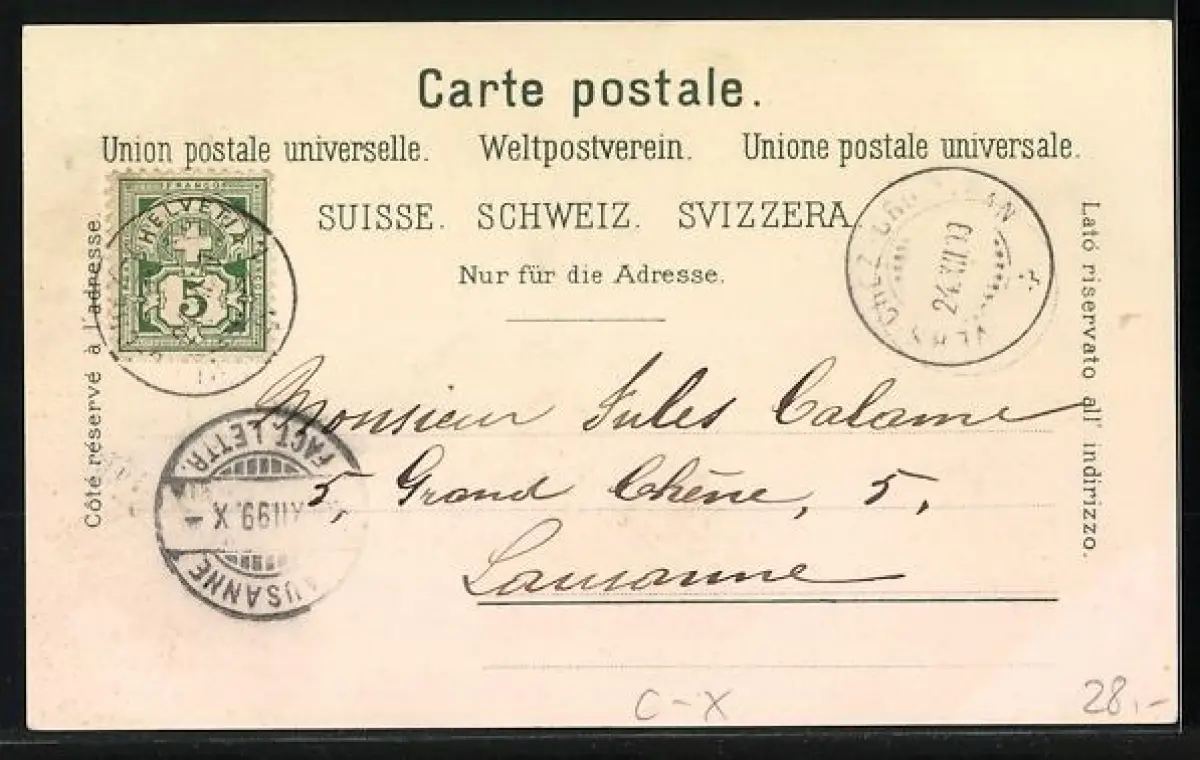 Carte postale.
Union postale universelle. Weltpostverein. Unione postale universale.
SUISSE. SCHWEIZ. SVIZZERA
Nur für die Adresse.
Côté réservé à l'adresse.
FRANCO
HELVETIA
5
24.XII.99
Lató riservato all' indirizzo.
Monsieur Jules Calame
5, Grand Chêne, 5,
Lausanne
FACT. LETTR.
XII 99. X
LAUSANNE
C-X
28.-